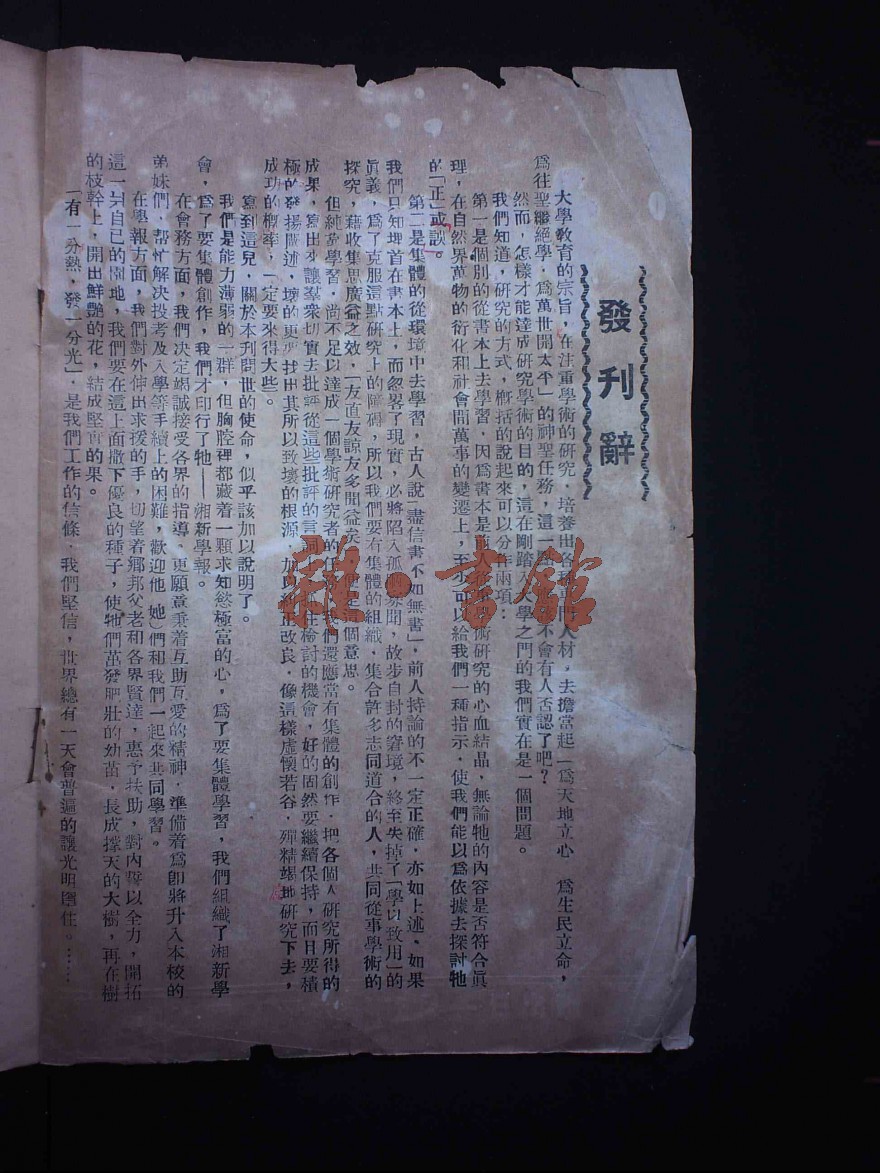 發刊辭
大學敎育的宗旨，在注重學術的研究，培養出各種專門人材，去擔當起「爲天地立心　爲生民立命，
爲往聖繼絕學，爲萬世開太平」的神聖任務，這一點不會有人否認了吧？
然而，怎樣才能達成研究學術的目的，這在剛踏入大學之門的我們實在是一個問題。
我們知道，研究的方式，槪括的說起來可以分作兩項：
第一是個別的從書本上去學習，因爲書本是前人從事學術研究的心血結晶，無論牠的內容是否符合眞
理，在自然界萬物的衍化和社會間萬事的變遷上，至少可以給我們一種指示，使我們能以爲依據去探討牠
的「正」或誤。
第二是集體的從環境中去學習，古人說「盡信書不如無書」，前人持論的不一定正確，亦如上述，如果
我們只知埋首在書本上，而忽畧了現實，必將陷入孤陋寡聞，故步自封的窘境，終至失掉了「學以致用」的
眞義，爲了克服這點研究上的障碍，所以我們要有集體的組織，集合許多志同道合的人，共同從事學術的
探究，藉收集思廣益之效，「友直友諒友多聞益矣」個意思。
但純粹學習，尚不足以達成一個學術研究者的任務，我們還應當有集體的創作，把各個人研究所得的
成果，寫出來讓羣衆切實去批評從這些批評的言詞檢討的機會，好的固然要繼續保持，而且要積
極的發揚闡述，壞的更應找出其所以致壞的根源，加以糾正改良，像這樣虛懷若谷，殫精竭地研究下去，
成功的機率，一定要來得大些。
寫到這兒，關於本刊問世的使命，似乎該加以說明了。
我們是能力薄弱的一群，但胸腔裡都藏着一顆求知慾極富的心，爲了要集體學習，我們組織了湘新學
會，爲了要集體創作，我們才印行了牠——湘新學報。
在會務方面，我們决定竭誠接受各界的指導，更願意秉着互助互愛的精神，準備着爲卽將升入本校的
弟妹們，帮忙解决投考及入學等手續上的困難，歡迎他（她）們和我們一起來共同學習。
在學報方面，我們對外伸出求援的手，切望着鄉邦父老和各界賢達，惠予扶助，對內誓以全力，開拓
這一塊自己的園地，我們要在這上面撒下優良的種子，使牠們茁發肥壯的幼苗，長成撑天的大樹，再在樹
的枝幹上，開出鮮艷的花，結成堅實的果。
「有一分熱，發一分光」，是我們工作的信條，我們堅信，世界總有一天會普遍的讓光明圍住。……
雜·書館